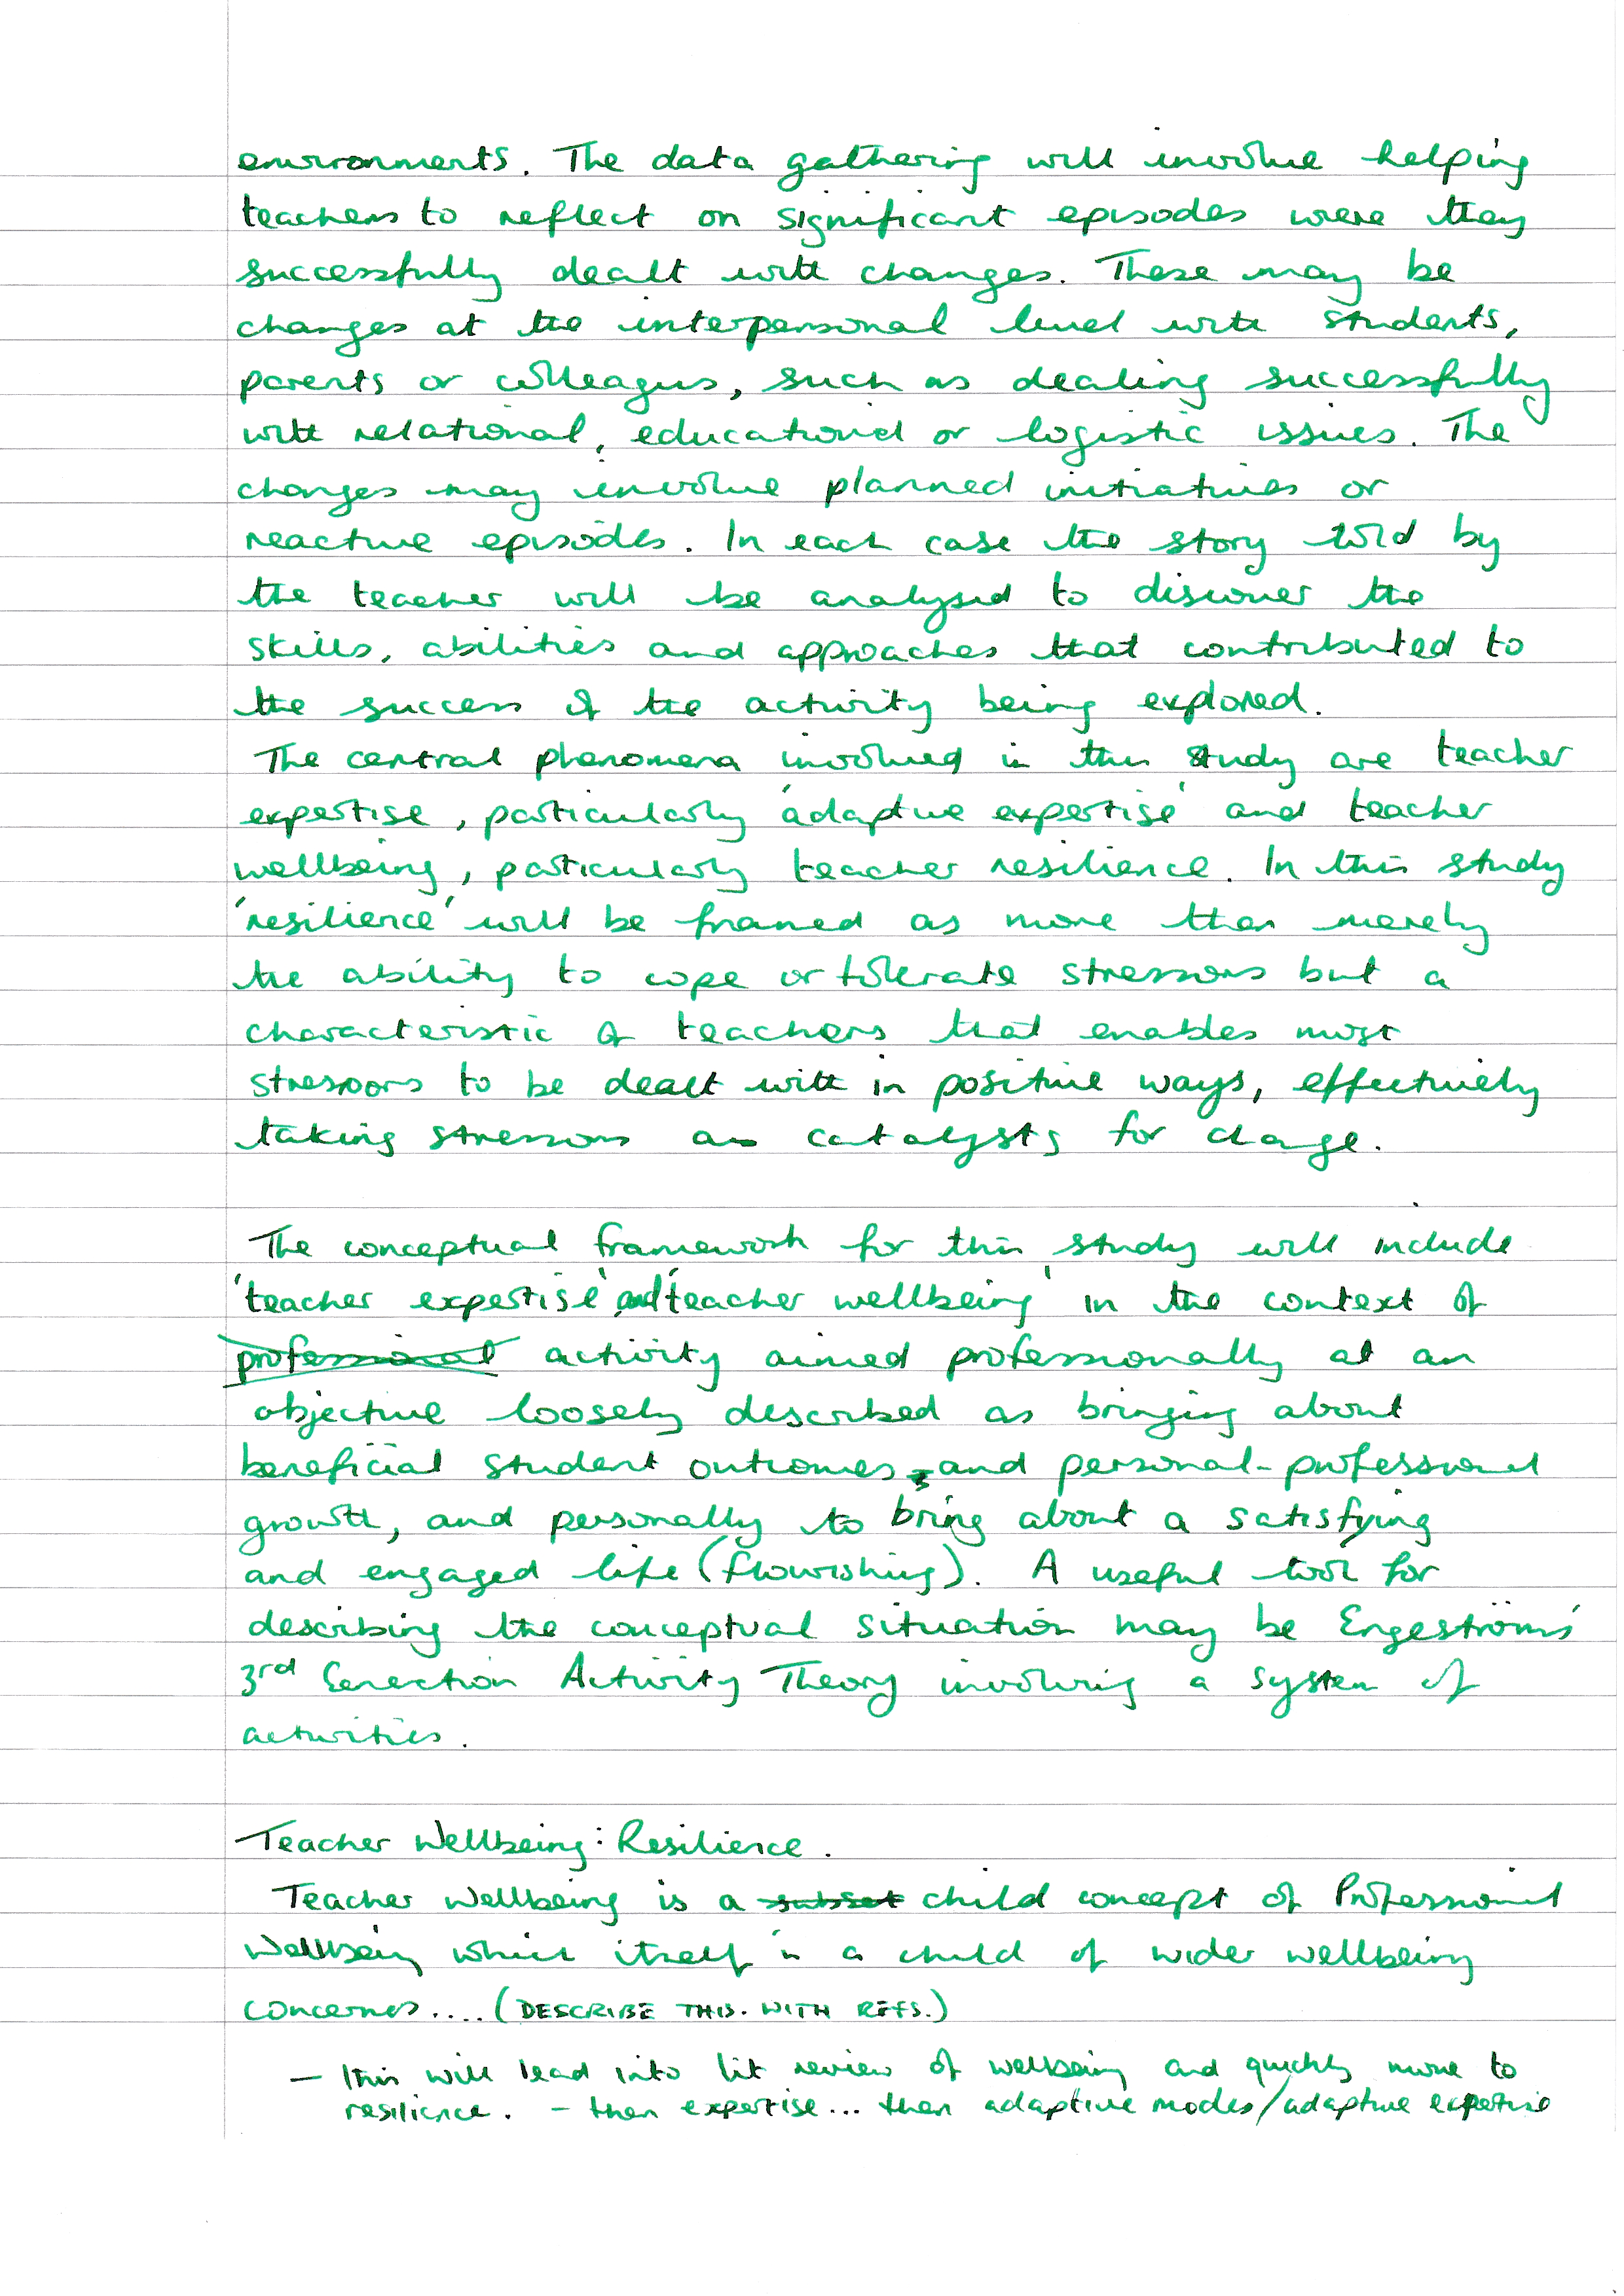 environments. The data gathering will involve helping
teachers to reflect on significant episodes were they
successfully dealt with changes. These may be
changes at the interpersonal level with students,
parents or colleagues, such as dealing successfully
with relational, educational or logistic issues. The
changes may involve planned initiatives or
reactive episodes. In each case the story told by
the teacher will be analysed to discover the
skills, abilities and approaches that contributed to
the success of the activity being explored.
The central phenomena involved in this study are teacher
expertise, particularly 'adaptive expertise' and teacher
wellbeing, particularly teacher resilience. In this study
'resilience' will be framed as more than merely
the ability to cope or tolerate stressors but a
characteristic of teachers that enables most
stressors to be dealt with in positive ways, effectively
taking stressors as catalysts for change.
The conceptual framework for this study will include
'teacher expertise' and 'teacher wellbeing' in the context of
professional activity aimed professionally at an
objective loosely described as bringing about
beneficial student outcomes, and personal-professional
growth, and personally to bring about a satisfying
and engaged life (flourishing). A useful tool for
describing the conceptual situation may be Engeström's
3rd Generation Activity Theory involving a system of
activities.
Teacher Wellbeing: Resilience.
Teacher Wellbeing is a subset child concept of Professional
Wellbeing which itself is a child of wider wellbeing
concerns.... (DESCRIBE THIS. WITH REFS.)
- this will lead into lit review of wellbeing and quickly move to
resilience. - then expertise... then adaptive modes/adaptive expertise